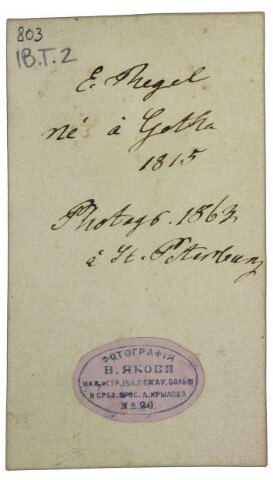 803
IB.T.2
E. Regel
né à Gotha
1815
Photogr. 1863.
à St. Petersburg
ФОТОГРАФІЯ
В. ЯКОБИ
НА В. ОСТР. 13 Л. МЕЖДУ БОЛЬШ
И СРЕД. ПРОС. Д. КРЫЛОВА
№ 20.